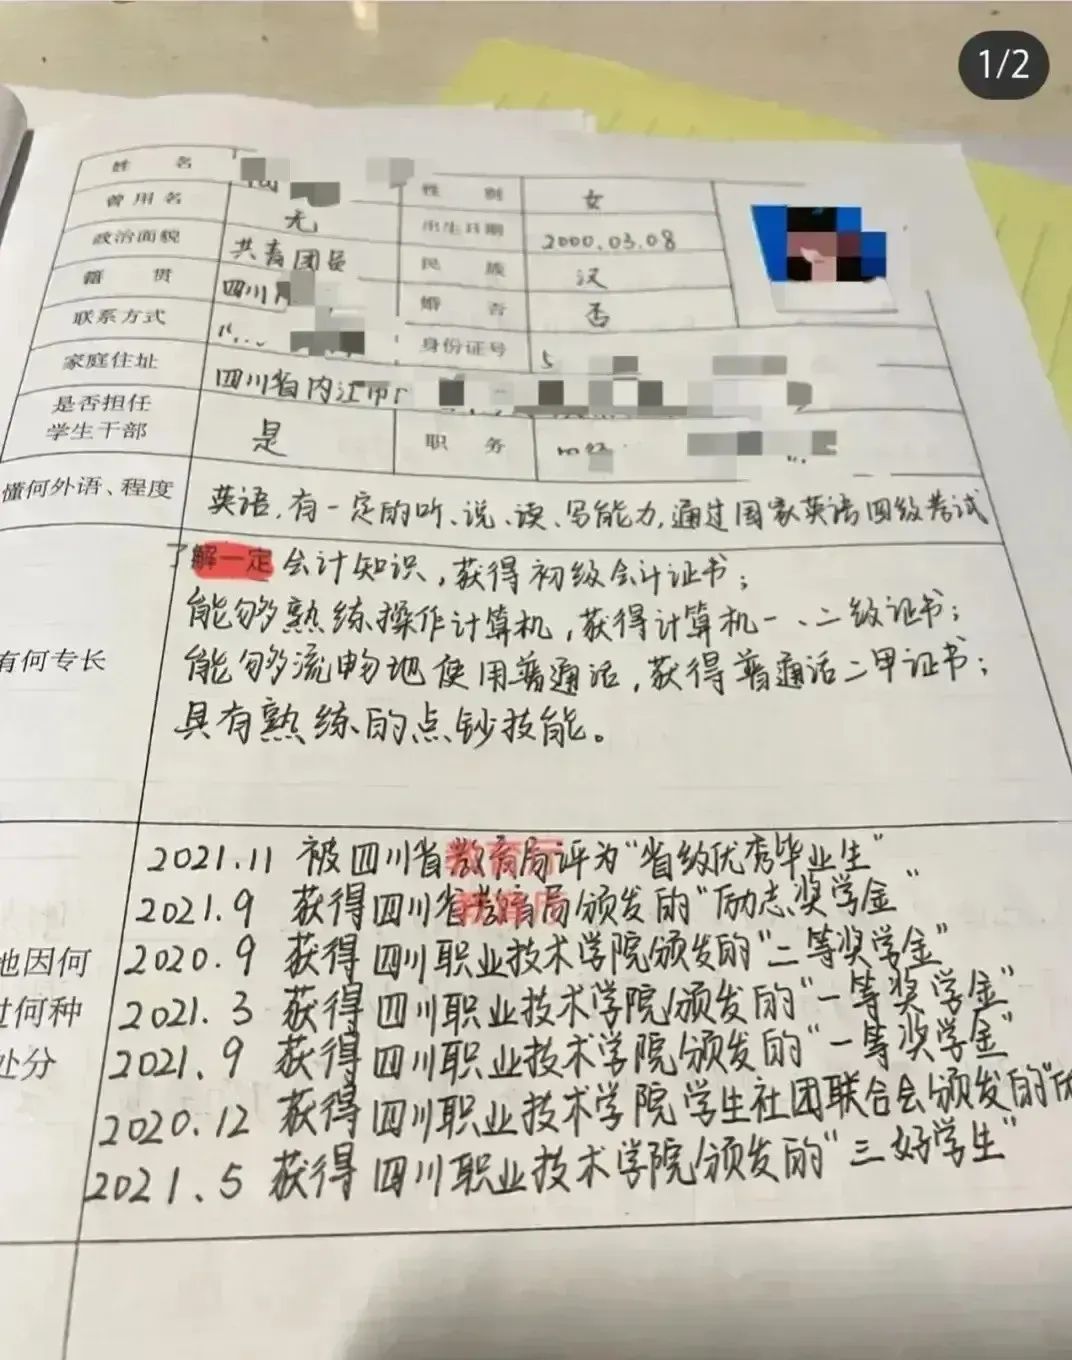 1/2
姓 名
性 别 女
曾用名 无
出生日期 2000.03.08
政治面貌 共青团员
民 族 汉
籍 贯 四川
婚 否 否
联系方式
身份证号 5
家庭住址 四川省内江市
是否担任
学生干部 是
职 务
懂何外语、程度 英语,有一定的听、说、读、写能力,通过国家英语四级考试
有何专长
了解一定会计知识,获得初级会计证书;
能够熟练操作计算机,获得计算机一、二级证书;
能够流畅地使用普通话,获得普通话二甲证书;
具有熟练的点钞技能。
地因何
过何种
处分
2021.11 被四川省教育局评为“省级优秀毕业生”
2021.9 获得四川省教育局颁发的“励志奖学金”
2020.9 获得四川职业技术学院颁发的“二等奖学金”
2021.3 获得四川职业技术学院颁发的“一等奖学金”
2021.9 获得四川职业技术学院颁发的“一等奖学金”
2020.12 获得四川职业技术学院学生社团联合会颁发的“
2021.5 获得四川职业技术学院颁发的“三好学生”